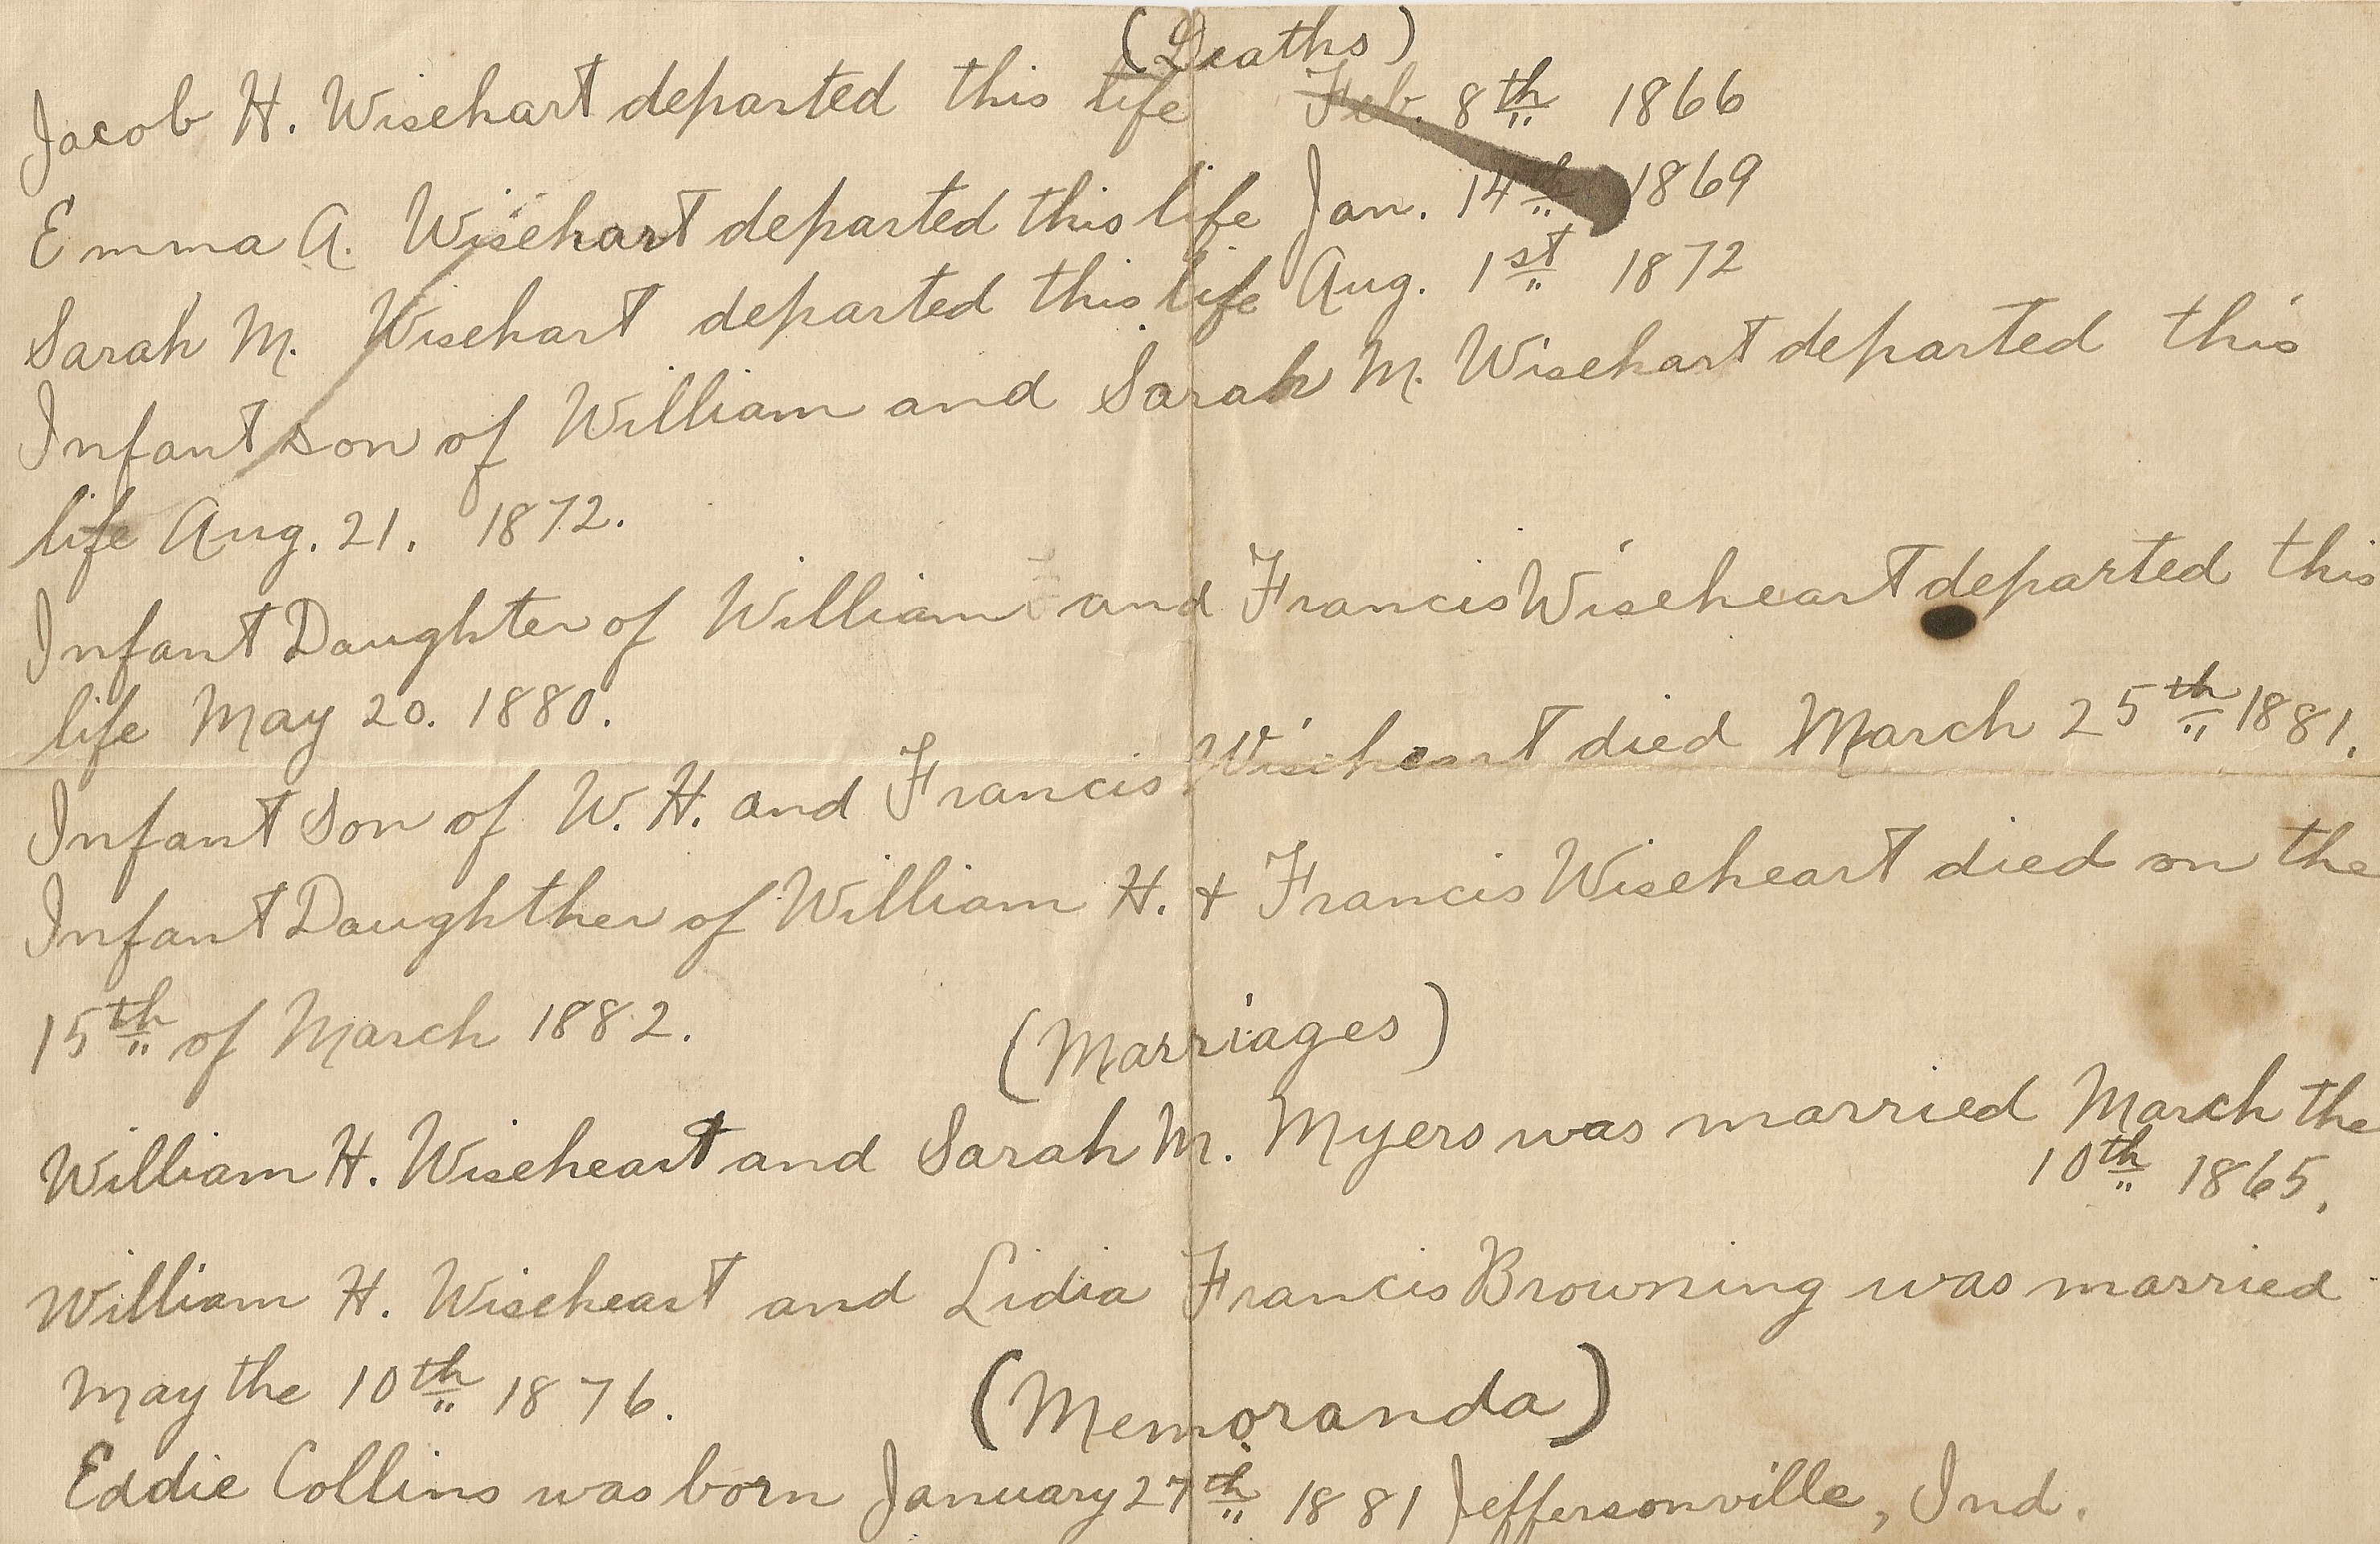 (Deaths)
Jacob H. Wisehart departed this life Feb. 8th 1866
Emma A. Wisehart departed this life Jan. 14th 1869
Sarah M. Wisehart departed this life Aug. 1st 1872
Infant son of William and Sarah M. Wisehart departed this
life Aug. 21. 1872.
Infant Daughter of William and Francis Wiseheart departed this
life May 20. 1880.
Infant Son of W. H. and Francis Wiseheart died March 25th 1881.
Infant Daughther of William H. + Francis Wiseheart died on the
15th of March 1882.
(Marriages)
William H. Wiseheart and Sarah M. Myers was married March the
10th 1865.
William H. Wiseheart and Lidia Francis Browning was married
May the 10th 1876.
(Memoranda)
Eddie Collins was born January 27th 1881 Jeffersonville, Ind.